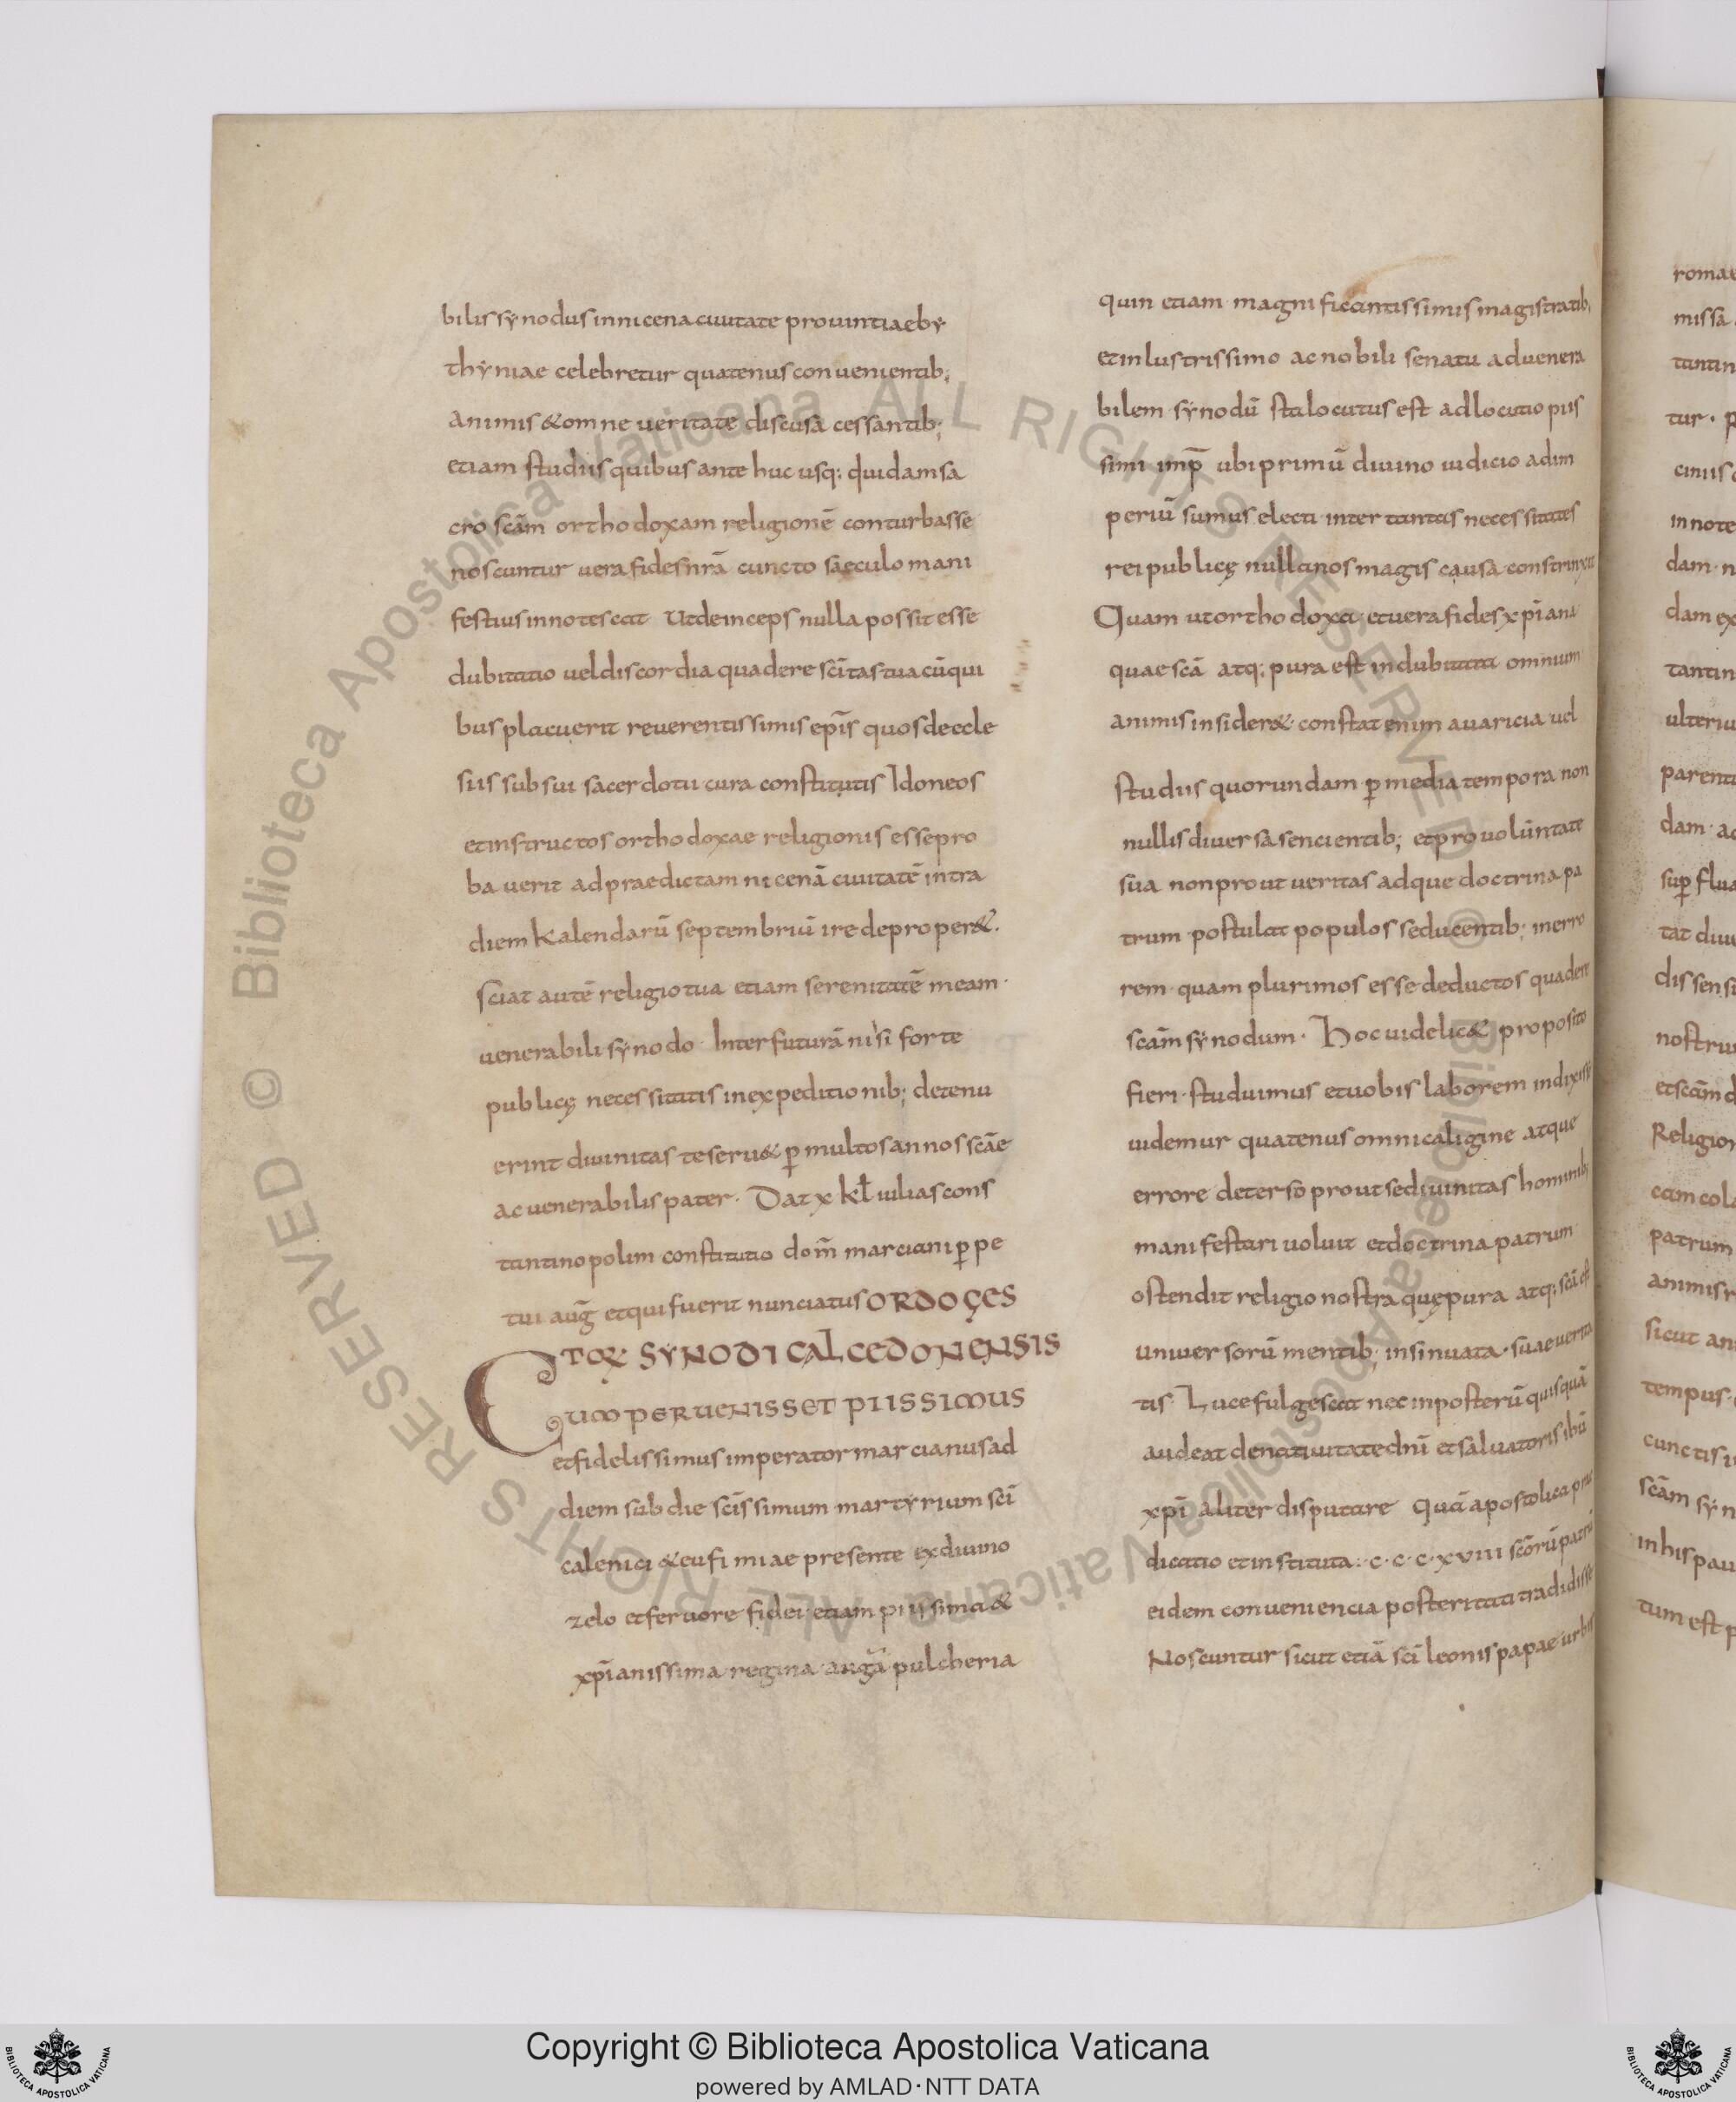 bilis synodus in nicena ciuitate prouintiae by
thyniae celebretur quatenus conuenientib;
animis & omne ueritate discusa cessantib;
etiam studiis quibus ante huc usq: quidam sa
cro scām orthodoxam religionē conturbasse
noscuntur uera fides nrā cuncto saeculo mani
festius innotescat Ut deinceps nulla possit esse
dubitatio uel discordia quadere scītas tua cūqui
bus placuerit reuerentissimis epīs quos de eccle
siis sub sui sacerdotii cura constitutis Idoneos
et instructos orthodoxae religionis esse pro
bauerit ad praedictam nicenā ciuitatē intra
diem Kalendarū septembriū ire deproper&.
sciat autē religio tua etiam serenitatē meam·
uenerabili synodo· Interfuturā nisi forte
publicę necessitatis in expeditionib; detenu
erint diuinitas te seru& ꝑ multos annos scāe
ac uenerabilis pater· Dat x kł iulias cons
tantinopolim constitutio dom̄ marciani ꝑpe
tui aug̅ et qui fuerit nunciatus ORDO GES
TOꝜ SYNODI CALCEDONENSIS
CUM PERUENISSET PIISSIMUS
et fidelissimus imperator marcianus ad
diem sub die scīssimum martyrium scī
calenici & eufimiae presente ex diuino
zelo et feruore fidei etiam piissima &
xpīanissima regina augā pulcheria
quin etiam magnificantissimis magistratib;
et inlustrissimo ac nobili senatu ad uenera
bilem synodū sta locutus est adlocutio piis
simi imp̄ ubi primū diuino iudicio ad im
periū sumus electi inter tantas necessitates
rei publicę nulla nos magis causa constrinxit
Quam ut orthodoxa et uera fides xpīana
quae scā atq: pura est indubitata omnium
animis insider& constat enim auaricia uel
studiis quorundam ꝑ media tempora non
nullis diuersa sencientib; et pro uolūntate
sua non prout ueritas adque doctrina pa
trum postulat populos seducentib; in erro
rem quam plurimos esse deductos quaderē
scām synodum· Hoc uidelic& proposito
fieri studuimus et uobis laborem indixisse
uidemur quatenus omni caligine atque
errore deterso prout se diuinitas hominib;
manifestari uoluit et doctrina patrum
ostendit religio nostra quę pura atq: scā est
uniuersorū mentib; insinuata· suae uerita
tis Luce fulgescat nec in posterū quisquā
audeat de natiuitate dnī et saluatoris ihū
xpī aliter disputare Quā apostolica prae
dicatio et instituta· c·c·c·xviii scōrū patrū
eidem conueniencia posteritati tradidisse
Noscuntur sicut etiā scī leonis papae urbis